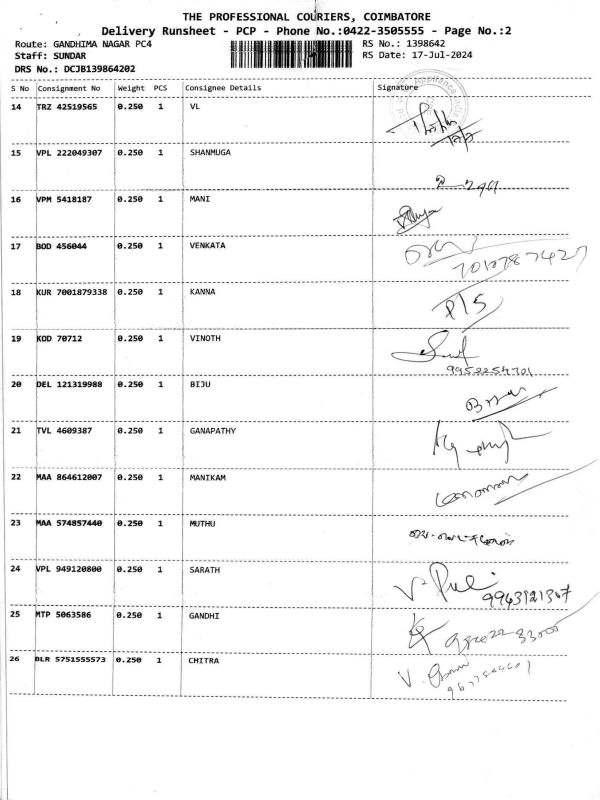 THE PROFESSIONAL COURIERS, COIMBATORE
Delivery Runsheet - PCP - Phone No.:0422-3505555 - Page No.:2
Route: GANDHIMA NAGAR PC4 RS No.: 1398642
Staff: SUNDAR RS Date: 17-Jul-2024
DRS No.: DCJB139864202
S No Consignment No Weight PCS Consignee Details Signature
14 TRZ 42519565 0.250 1 VL
15 VPL 222049307 0.250 1 SHANMUGA
16 VPM 5418187 0.250 1 MANI
17 BOD 456044 0.250 1 VENKATA
18 KUR 7001879338 0.250 1 KANNA
19 KOD 70712 0.250 1 VINOTH
9952254701
20 DEL 121319988 0.250 1 BIJU
21 TVL 4609387 0.250 1 GANAPATHY
22 MAA 864612007 0.250 1 MANIKAM
23 MAA 574857440 0.250 1 MUTHU
24 VPL 949120800 0.250 1 SARATH
9943121307
25 MTP 5063586 0.250 1 GANDHI
26 BLR 5751555573 0.250 1 CHITRA